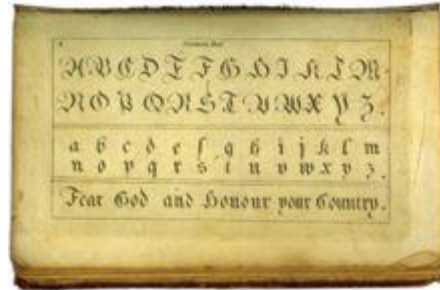 A B C D E F G H I K L M.
N O P Q R S T U W X Y Z.
a b c d e f g h i j k l m
n o p q r s t u v w x y z.
Fear God and Honour your Country.